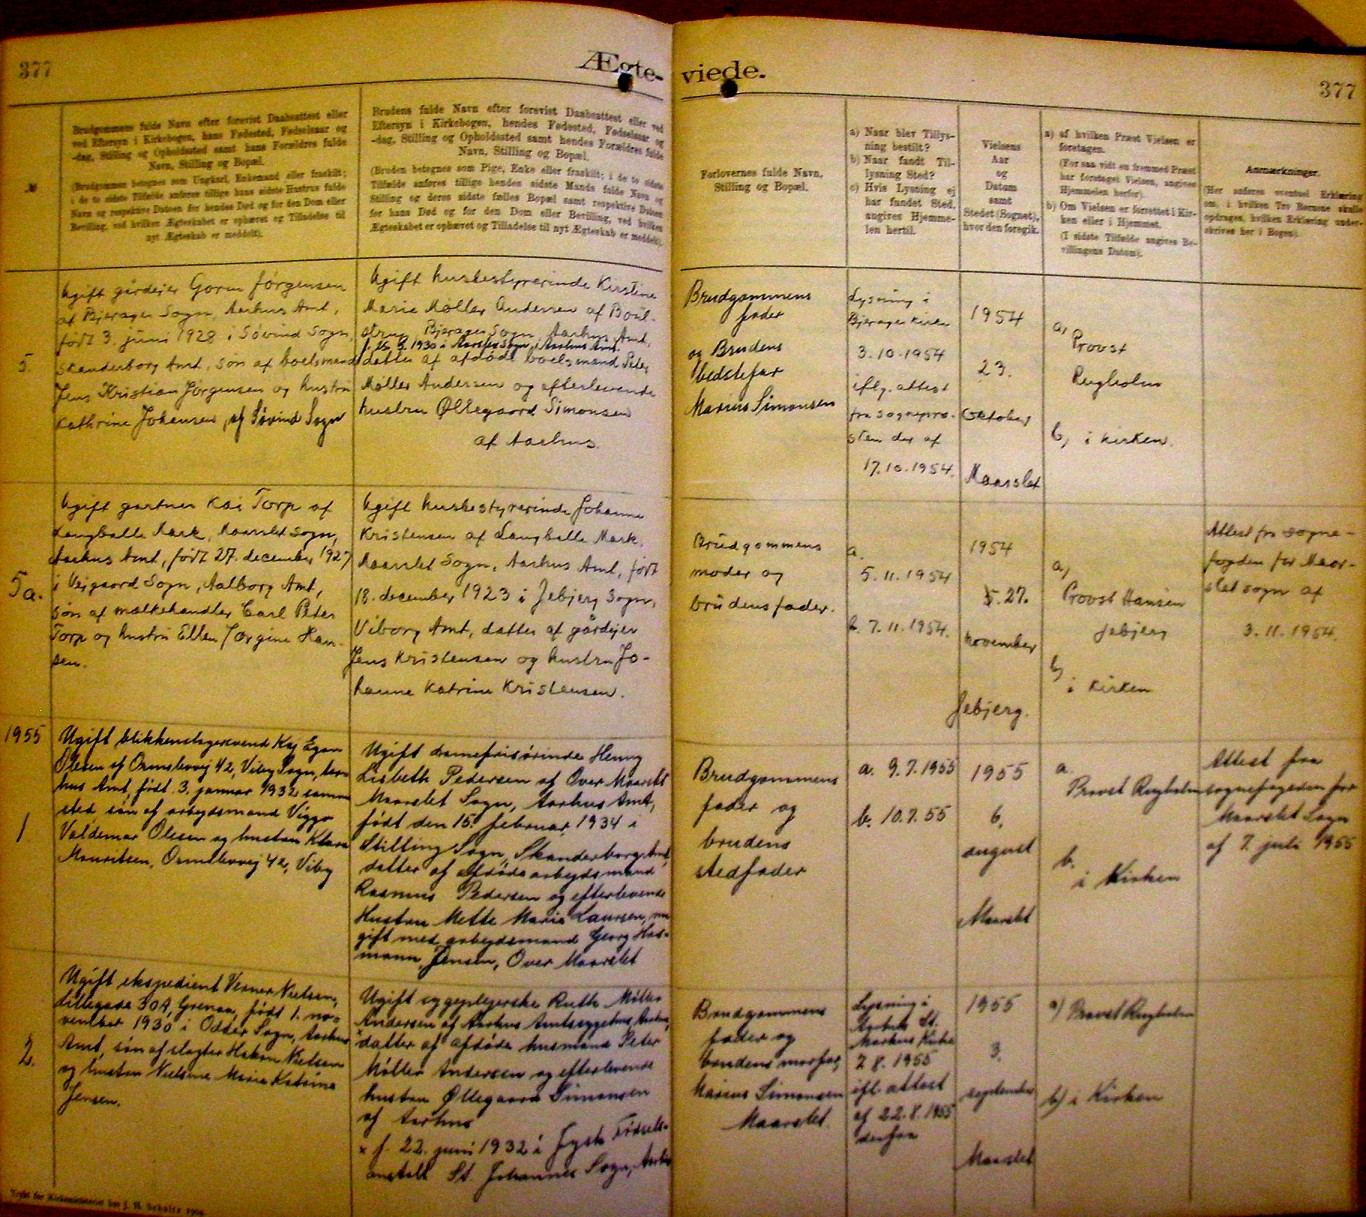 377
Ægte-
viede.
377
№
Brudgommens fulde Navn efter forevist Daabsattest eller
ved Eftersyn i Kirkebogen, hans Fødested, Fødselsaar og
-dag, Stilling og Opholdssted samt hans Forældres fulde
Navn, Stilling og Bopæl.
(Brudgommen betegnes som Ungkarl, Enkemand eller fraskilt;
i de to sidste Tilfælde anføres tillige hans sidste Hustrus fulde
Navn og respektive Datoen for hendes Død og for den Dom eller
Bevilling, ved hvilken Ægteskabet er ophævet og Tilladelse til
nyt Ægteskab er meddelt).
Brudens fulde Navn efter forevist Daabsattest eller ved
Eftersyn i Kirkebogen, hendes Fødested, Fødselsaar og
-dag, Stilling og Opholdssted samt hendes Forældres fulde
Navn, Stilling og Bopæl.
(Bruden betegnes som Pige, Enke eller fraskilt; i de to sidste
Tilfælde anføres tillige hendes sidste Mands fulde Navn og
Stilling og deres sidste fælles Bopæl samt respektive Datoen
for hans Død og for den Dom eller Bevilling, ved hvilken
Ægteskabet er ophævet og Tilladelse til nyt Ægteskab er meddelt).
Forlovernes fulde Navn,
Stilling og Bopæl.
a) Naar blev Tillys-
ning bestilt?
b) Naar fandt Til-
lysning Sted?
c) Hvis Lysning ej
har fundet Sted,
angives Hjemme-
len hertil.
Vielsens
Aar
og
Datum
samt
Stedet (Sognet),
hvor den foregik.
a) af hvilken Præst Vielsen er
foretagen.
(For saa vidt en fremmed Præst
har foretaget Vielsen, angives
Hjemmelen herfor).
b) Om Vielsen er forrettet i Kir-
ken eller i Hjemmet.
(I sidste Tilfælde angives Be-
villingens Datum).
Anmærkninger.
(Her anføres eventuel Erklæring
om, i hvilken Tro Børnene skulle
opdrages, hvilken Erklæring under-
skrives her i Bogen).
5.
Ugift gårdejer Gorm Jørgensen
af Bjerager Sogn, Aarhus Amt,
født 3. juni 1928 i Søvind Sogn,
Skanderborg Amt, søn af boelsmand
Jens Kristian Jørgensen og hustru
Kathrine Johansen, af Søvind Sogn
Ugift husbestyrerinde Kirstine
Marie Møller Andersen af Boul-
strup, Bjerager Sogn, Aarhus Amt,
1930 i Maarslet Sogn, Aarhus Amt.
datter af afdøde boelsmand Peter
Møller Andersen og efterlevende
hustru Øllegaard Simonsen
af Aarhus.
Brudgommens
fader
og Brudens
bedstefar
Marius Simonsen
Lysning i
Bjerager Kirke
3.10.1954
iflg. attest
fra sognepræ-
sten der af
17.10.1954.
1954
23.
Oktober
Maarslet
a)
Provst
Rugholm
b) i kirken.
5a.
Ugift gartner Kai Torp af
Langballe Mark, Maarslet sogn,
Aarhus Amt, født 27. december 1927
i Vejgaard Sogn, Aalborg Amt,
søn af mælkehandler Carl Peter
Torp og hustru Ellen Jørgine Han-
sen.
Ugift husbestyrerinde Johanne
Kristensen af Langballe Mark,
Maarslet Sogn, Aarhus Amt, født
18. december 1923 i Jebjerg Sogn,
Viborg Amt, datter af gårdejer
Jens Kristensen og hustru Jo-
hanne Katrine Kristensen.
Brudgommens
moder og
brudens fader.
a.
5.11.1954
b. 7.11.1954.
1954
27.
november
Jebjerg.
a)
Provst Hansen
Jebjerg
b)
i kirken
Attest fra sogne-
fogden for Maar-
slet sogn af
3.11.1954.
1955
1.
Ugift blikkenslagersvend Kaj Egon
Olesen af Ormslevvej 42, Viby Sogn, Aar-
hus Amt, født 3. januar 1932 samme
sted søn af arbejdsmand Viggo
Valdemar Olesen og hustru Klara
Mauritsen, Ormslevvej 42, Viby
Ugift damefrisørinde Henny
Lisbeth Pedersen af Over Maarslet
Maarslet Sogn, Aarhus Amt,
født den 15. februar 1934 i
Stilling Sogn, Skanderborg Amt,
datter af afdøde arbejdsmand
Rasmus Pedersen og efterlevende
Hustru Mette Marie Laursen, nu
gift med arbejdsmand Georg Has-
mann Jensen, Over Maarslet
Brudgommens
fader og
brudens
stedfader
a. 9.7.1955
b. 10.7.55
1955
6.
august
Maarslet
a.
Provst Rugholm
b.
i Kirken
Attest fra
sognefogeden for
Maarslet Sogn
af 7. juli 1955
2.
Ugift ekspedient Verner Nielsen,
Lillegade 30A, Grenaa, født 1. no-
vember 1930 i Odder Sogn, Aarhus
Amt, søn af slagter Hakon Nielsen
og hustru Nielsine Marie Katrine
Jensen.
Ugift sygeplejerske Ruth Møller
Andersen af Aarhus Amtssygehus, Aarhus,
× datter af afdøde husmand Peter
Møller Andersen og efterlevende
hustru Øllegaard Simonsen
af Aarhus
× f. 22. juni 1932 i Jysk Fødsels-
anstalt St. Johannes Sogn, Aarhus
Brudgommens
fader og
brudens morfar,
Marius Simonsen
Maarslet.
Lysning i
Aarhus St.
Markus Kirke
7.8.1955
ifl. attest
af 22.8.1955
derfra
1955
3.
september
Maarslet
a) Provst Rugholm
b) i Kirken
Trykt for Kirkeministeriet hos J. H. Schultz